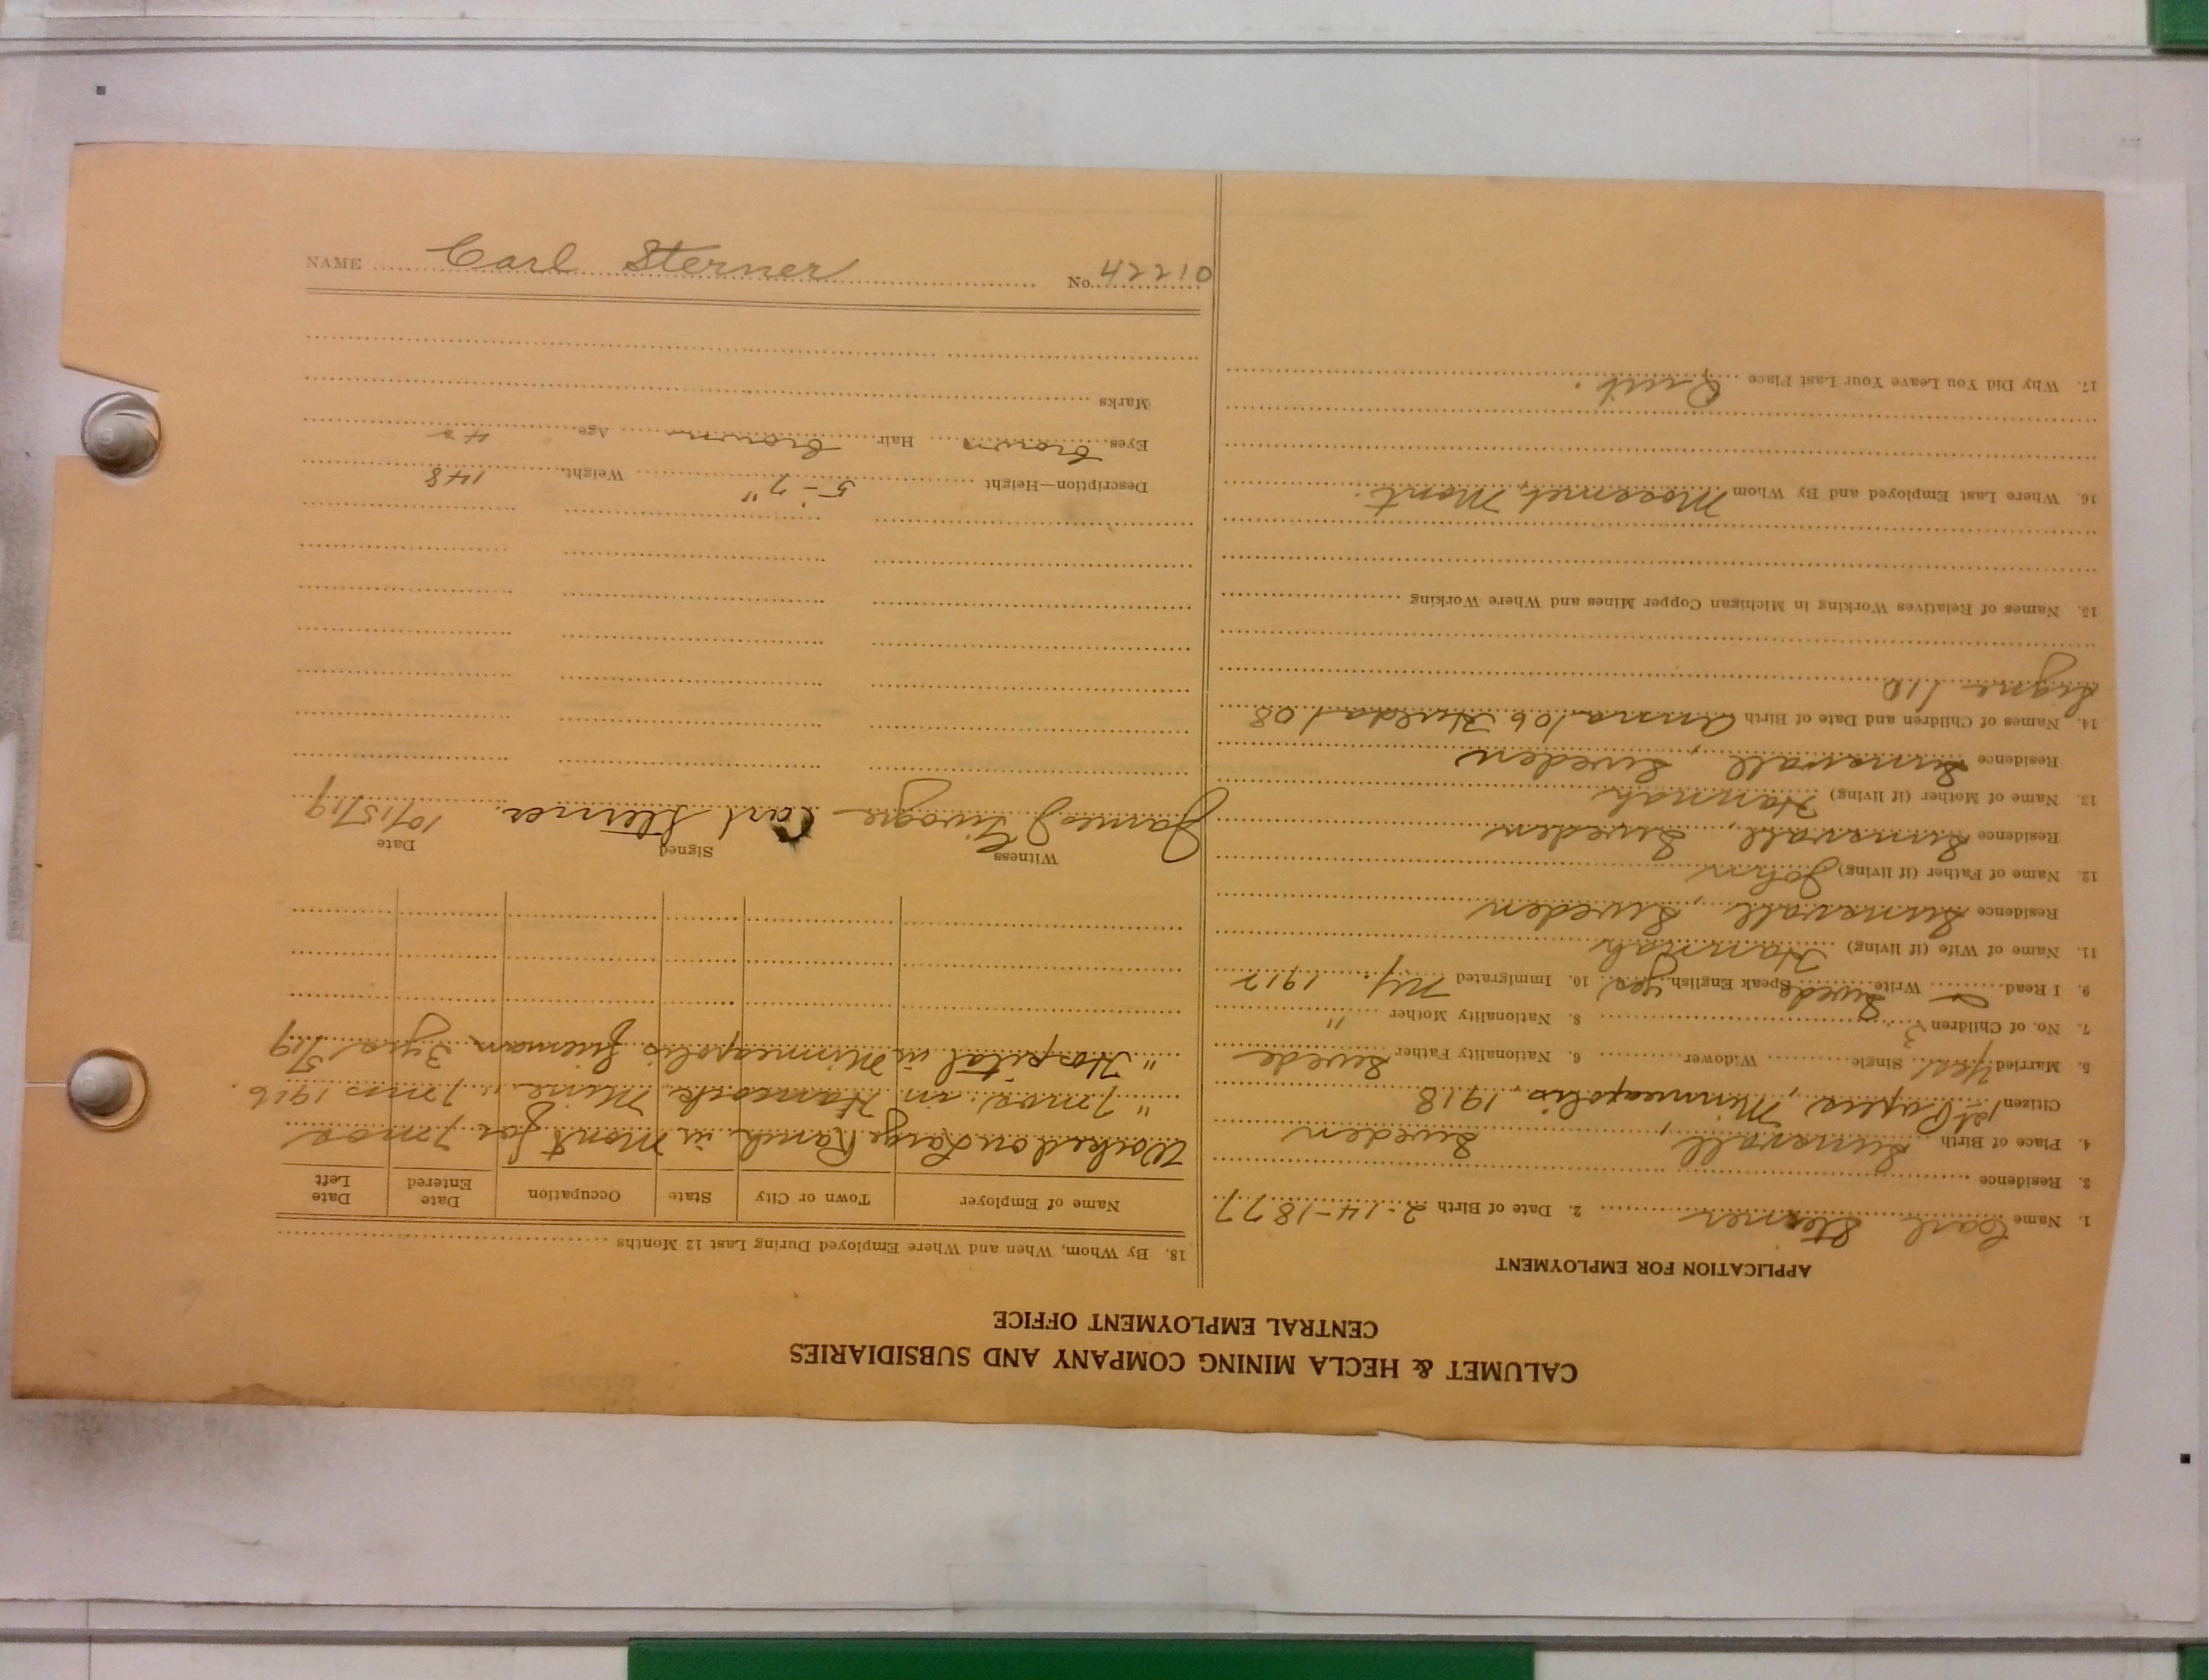 CALUMET & HECLA MINING COMPANY AND SUBSIDIARIES
CENTRAL EMPLOYMENT OFFICE
APPLICATION FOR EMPLOYMENT
1. Name Carl Sterner 2. Date of Birth 2-14-1877
3. Residence
4. Place of Birth Sunsvall, Sweden
Citizen 1st Papers, Minneapolis, 1918
5. Married Yes Single Widower 6. Nationality Father Swede
7. No. of Children 3 8. Nationality Mother "
9. I Read Write Swede Speak English Yes 10. Immigrated N.Y. 1912
11. Name of Wife (if living) Hannah
Residence Sunsvall, Sweden
12. Name of Father (if living) John
Residence Sunsvall, Sweden
13. Name of Mother (if living) Hannah
Residence Sunsvall, Sweden
14. Names of Children and Date of Birth Anna / 06 Hulda / 08
Signe / 10
15. Names of Relatives Working in Michigan Copper Mines and Where Working
16. Where Last Employed and By Whom Mont.
17. Why Did You Leave Your Last Place Quit.
18. By Whom, When and Where Employed During Last 12 Months
Name of Employer Town or City State Occupation Date Entered Date Left
Worked on Large Ranch in Mont for 7 mos
" 7 mos in Hancock Mine " 7 mos 1916.
" Hospital in Minneapolis Fireman 3 yrs 5/19
Witness Signed Date
James J Carl Sterner. 10/15/19
Description—Height 5-7" Weight 148
Eyes brown Hair brown Age 42
Marks
NAME Carl Sterner No. 42210